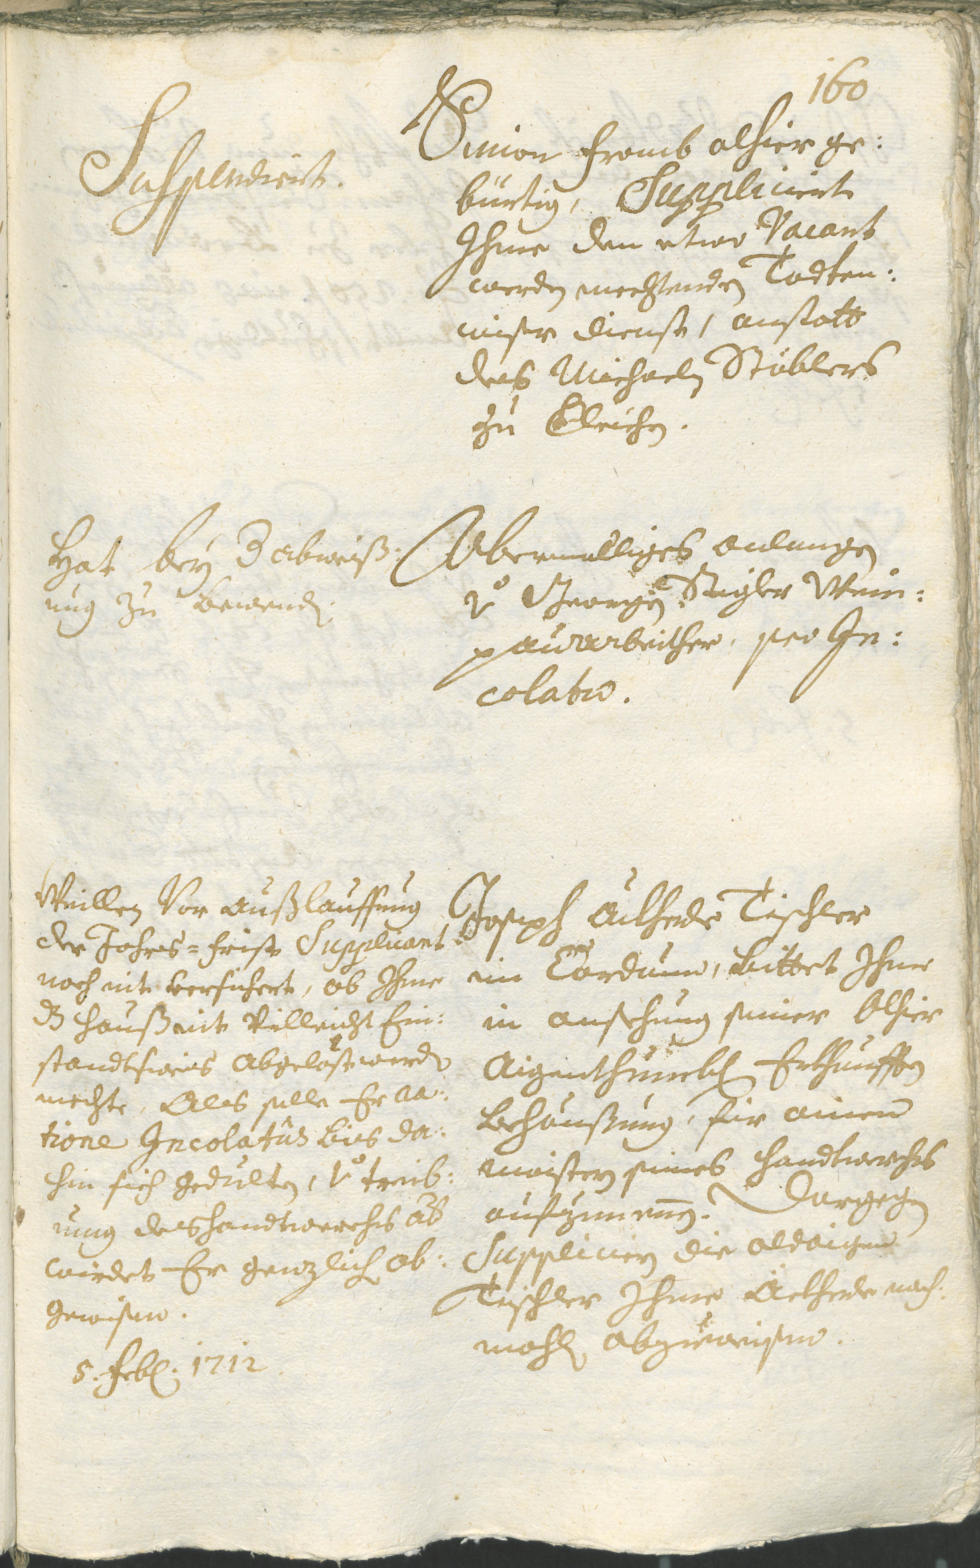 160
Suspendirt.
Simon Fromb alhier ge:
bürtig, Supplicirt
Ihme den etwo Vacant
werden mechtenden Todten:
dienst, anstatt
des Michaeln Stüblers
zu
Hat bey 3 abweiß:
ung zu bewend.
Abermaliges anlangen
v. Georgen Wein:
paurarbeither, pro In:
colatu.
Weillen Vor außlauffung
der Jahrs=frist Supplicant
noch nit versichert, ob Ihme
dz hauß nit villeicht Ein:
standtsweis abgelöst werden
mechte, Als solle Er ra:
tione Incolatus bis da:
hin sich gedulten, v. treib:
ung des handtwerchs aber
würdet Er genzlich ab:
gewisen.
5. Feb: 1712
Joseph Tischler
im bittet Ihme
in ansehung seiner Alhier
Aigenthumbl: Erkhaufften
behaußung, für ainen
maister seines handtwerchs
aufzunemen. Dargegen
Suppliciern die
Tischler Ihme nach:
mahln abzuweisen.